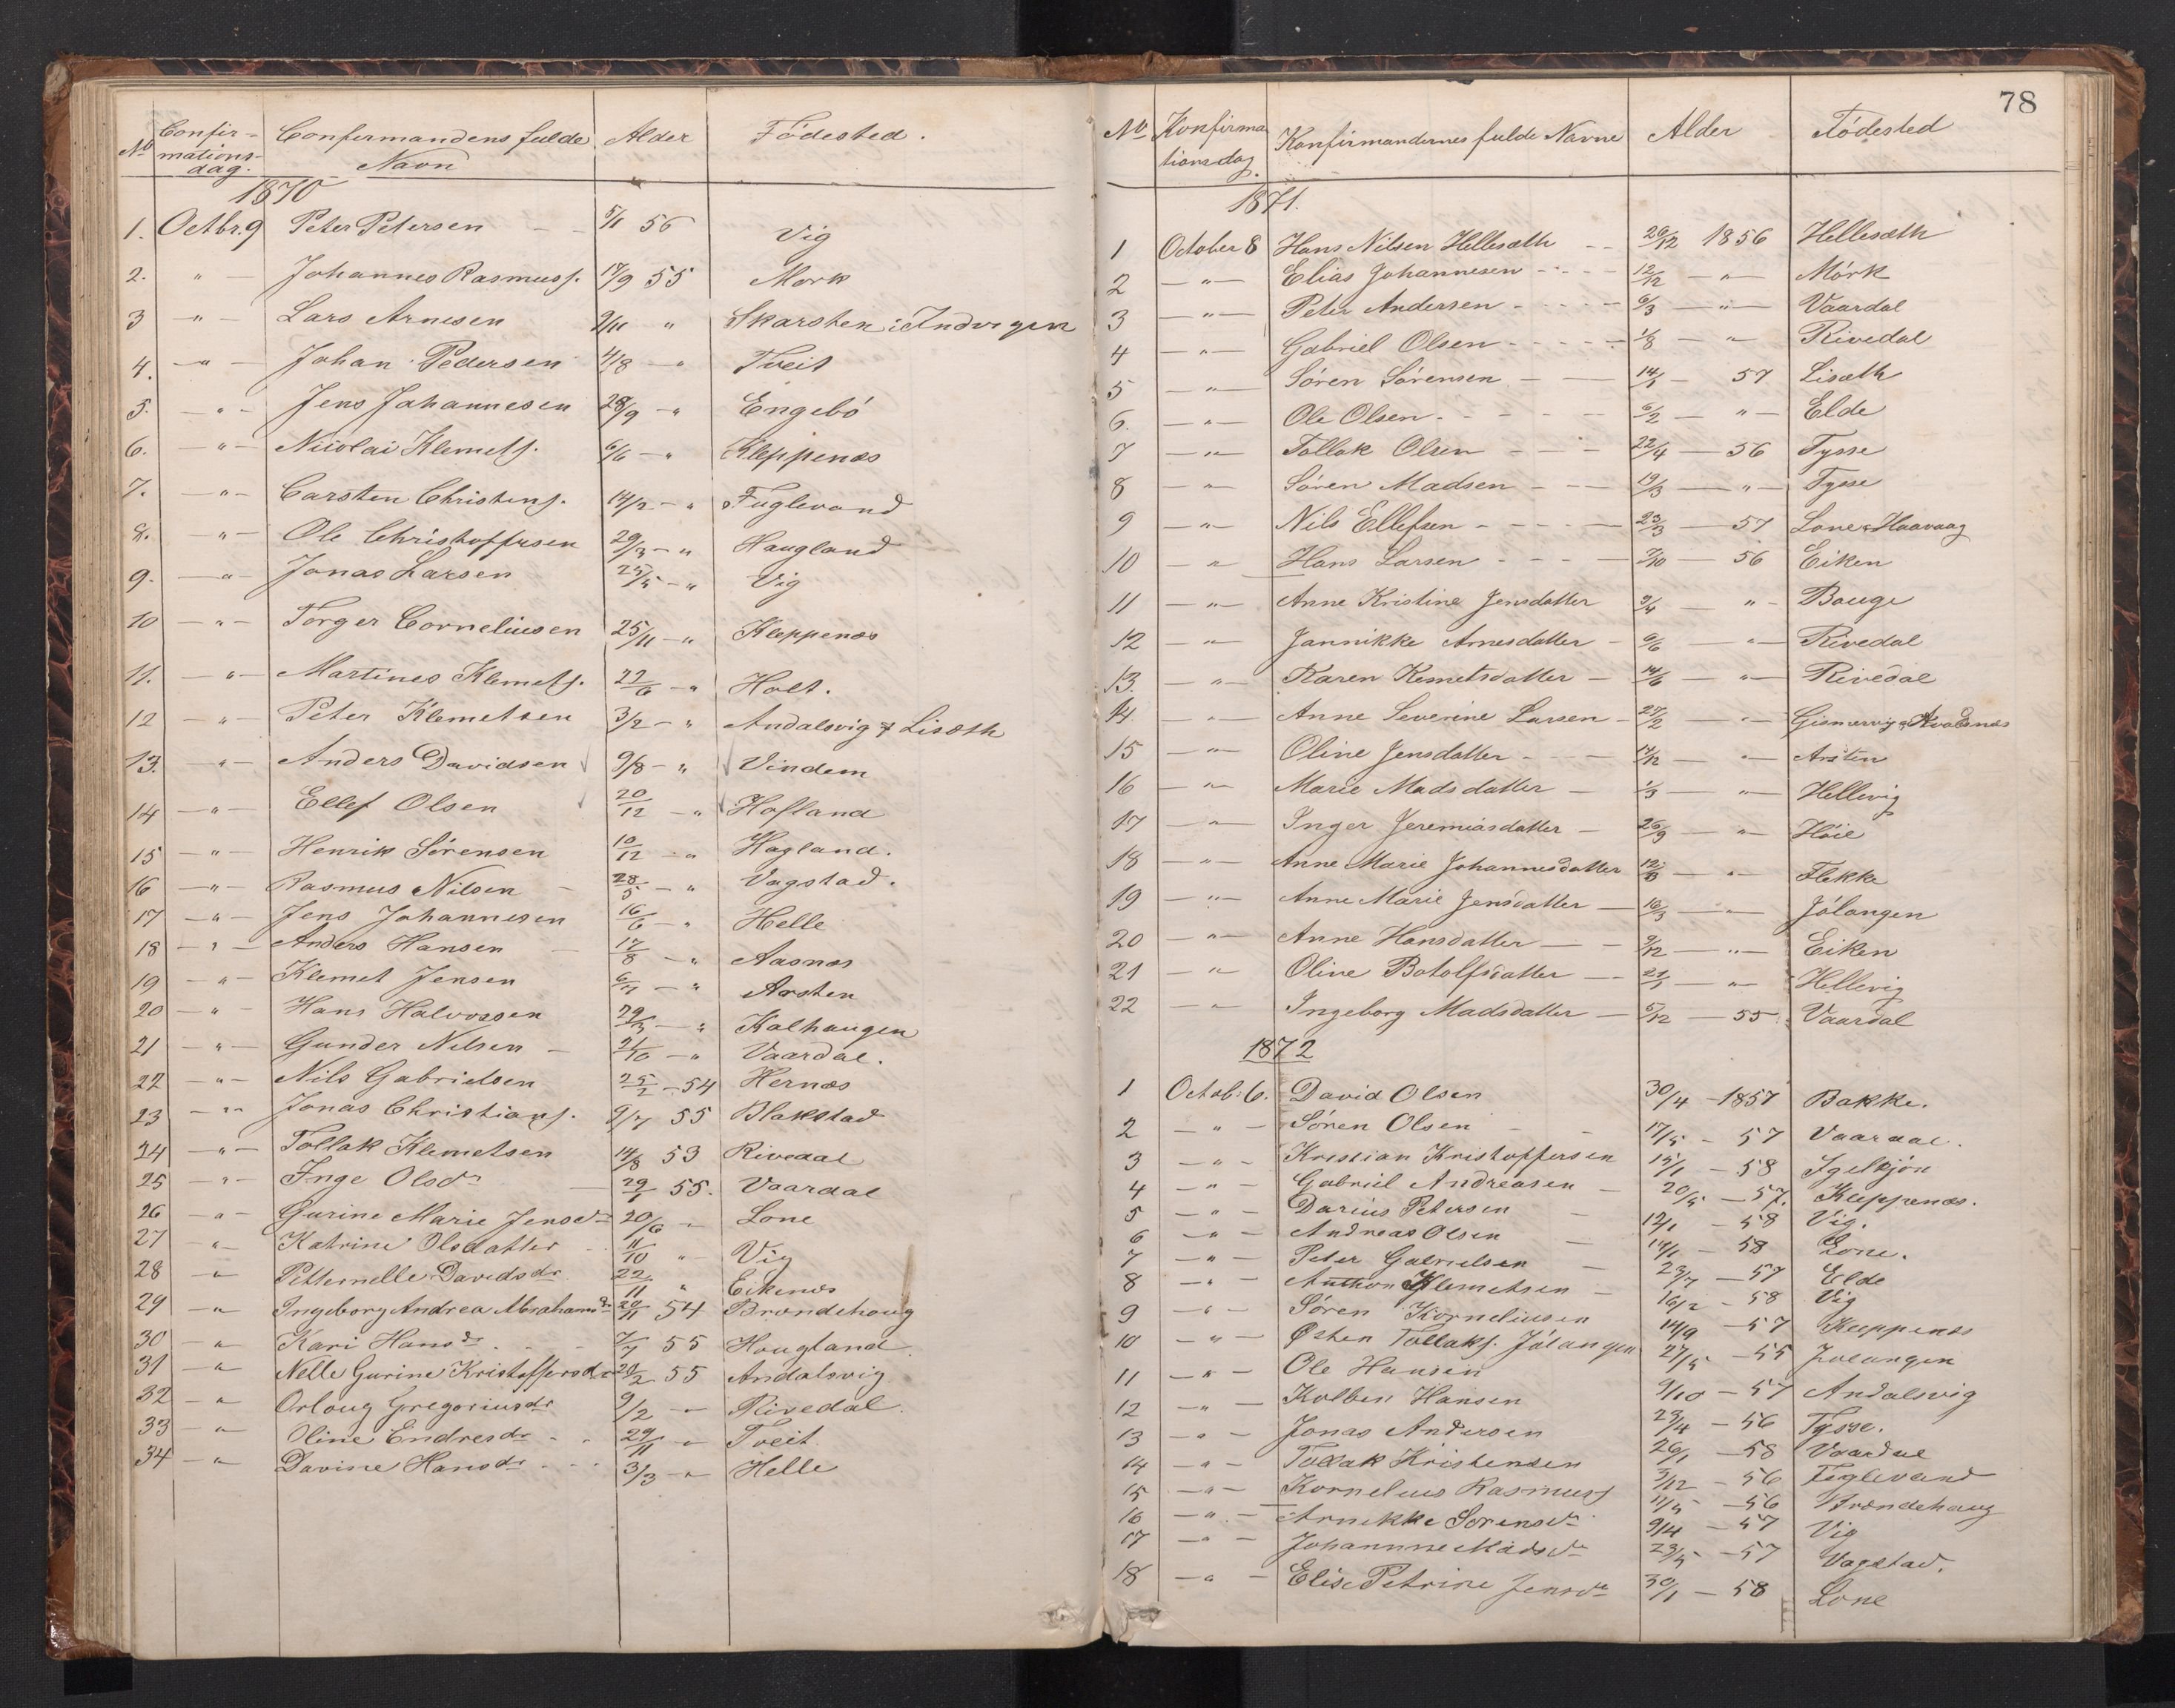 No Confir-mations-dag. Confirmandens fulde Navn Alder Fødested.
1870
1. Octbr. 9 Peter Petersen 5/11 56 Vig
2. " Johannes Rasmuss. 17/9 55 Mørk
3 " Lars Arnesen 2/11 " Skarsten i Indvigen
4. " Johan Pedersen 4/8 " Tveit
5. " Jens Johannesen 28/9 " Engebö
6. " Nicolai Klemets. 6/6 " Kleppenæs
7. " Carsten Christens. 14/2 " Fuglevand
8. " Ole Christoffersen 29/3 " Haugland
9. " Jonas Larsen 25/5 " Vig
10 " Torger Corneliusen 25/11 " Kleppenæs
11. " Martines Klemets. 22/6 " Holt.
12 " Peter Klemetsen 3/2 " Andalsvig & Lisæth
13. " Anders Davidsen 9/8 " Vindem
14 " Ellef Olsen 20/12 " Hofland
15 " Henrik Sörensen 10/12 " Hagland.
16 " Rasmus Nilsen 28/5 " Vagstad.
17 " Jens Johannesen 16/6 " Helle
18 " Anders Hansen 17/8 " Aasnæs
19 " Klemet Jensen " Arsten
20 " Hans Halvorsen 29/3 " Kalhaugen
21 " Gunder Nilsen 21/10 " Vaardal.
22 " Nils Gabrielsen 25/2 54 Hernæs
23 " Jonas Christians. 9/7 55 Blakstad
24 " Tollak Klemetsen 14/8 53 Rivedal
25 " Inge Olsdr 29/1 55. Vaardal
26 " Gurine Marie Jensdr 20/6 " Lone
27 " Katrine Olsdatter 11/10 " Vig
28 " Petternelle Davidsdr 22/11 " Eikenæs
29 " Ingeborg Andrea Abrahamsdr 20/11 54 Brændehoug
30 " Kari Hansdr 7/7 55 Hougland.
31 " Nelle Gurine Kristoffersdr 20/2 55 Andalsvig
32 " Orloug Gregoriusdr 9/2 " Rivedal.
33 " Oline Endresdr 29/11 " Tveit
34 " Davine Hansdr 3/3 " Helle
78
No Konfirmationsdag. Konfirmandernes fulde Navne Alder Fødested
1871.
1 October 8 Hans Nilsen Hellesæth 26/12 1856 Hellesæth
2 " Elias Johannesen 12/12 " Mörk
3 " Peter Andersen 6/3 " Vaardal
4 " Gabriel Olsen 1/8 " Rivedal
5 " Sören Sörensen 14/1 57 Lisæth
6. " Ole Olsen 6/2 " Elde
7 " Tollak Olsen 22/4 56 Tysse
8 " Sören Madsen 19/3 " Tysse
9 " Nils Ellefsen 23/3 57 Lone & Haavaag
10 " Hans Larsen 7/10 56 Eiken
11 " Anne Kristine Jensdatter 9/4 " Bauge
12 " Jannikke Arnesdatter 6/6 " Rivedal
13. " Karen Kemetsdatter 14/6 " Rivedal
14. " Anne Severine Larsen 27/2 " Gismervig & Avaldsnæs
15 " Oline Jensdatter 17/12 " Arsten
16 " Marie Madsdatter 1/3 " Hellevig
17 " Inger Jeremiasdatter 26/9 " Höie
18 " Anne Marie Johannesdatter " Flekke
19 " Anne Marie Jensdatter 16/3 " Jölangen
20 " Anne Hansdatter 9/12 " Eiken
21 " Oline Botolfsdatter 21/1 " Hellevig
22 " Ingeborg Madsdatter 5/12 55 Vaardal
1872
1 Octob. 6. David Olsen 30/4 1857 Bakke.
2 " Sören Olsen 17/5 57 Vaardal.
3 " Kristian Kristoffersen 15/1 58 Igeltjön
4 " Gabriel Andreasen 20/5 57. Kleppenæs.
5 " Darius Petersen 12/1 58 Vig.
6 " Andreas Olsen 14/1 58 Lone.
7 " Peter Gabrielsen 23/7 57 Elde
8 " Anthon Klemetsen 16/2 58 Vig
9 " Sören Korneliusen 14/9 57 Kleppenæs
10 " Østen Tollaks. Jölangen 27/5 55 Jolangen
11 " Ole Hansen 9/10 57 Andalsvig
12 " Kolben Hansen 29/4 56 Tysse.
13 " Jonas Andersen 26/1 58 Vaardal
14 " Tollak Kristensen 3/12 56 Fuglevand
15 " Kornelius Rasmuss 11/5 56 Brændehaug
16 " Arnikke Sorensdr 9/4 57 Vig
17 " Johannne Madsdr 23/5 57 Vagstad.
18 " Elise Petrine Jensdr 30/1 58 Lone